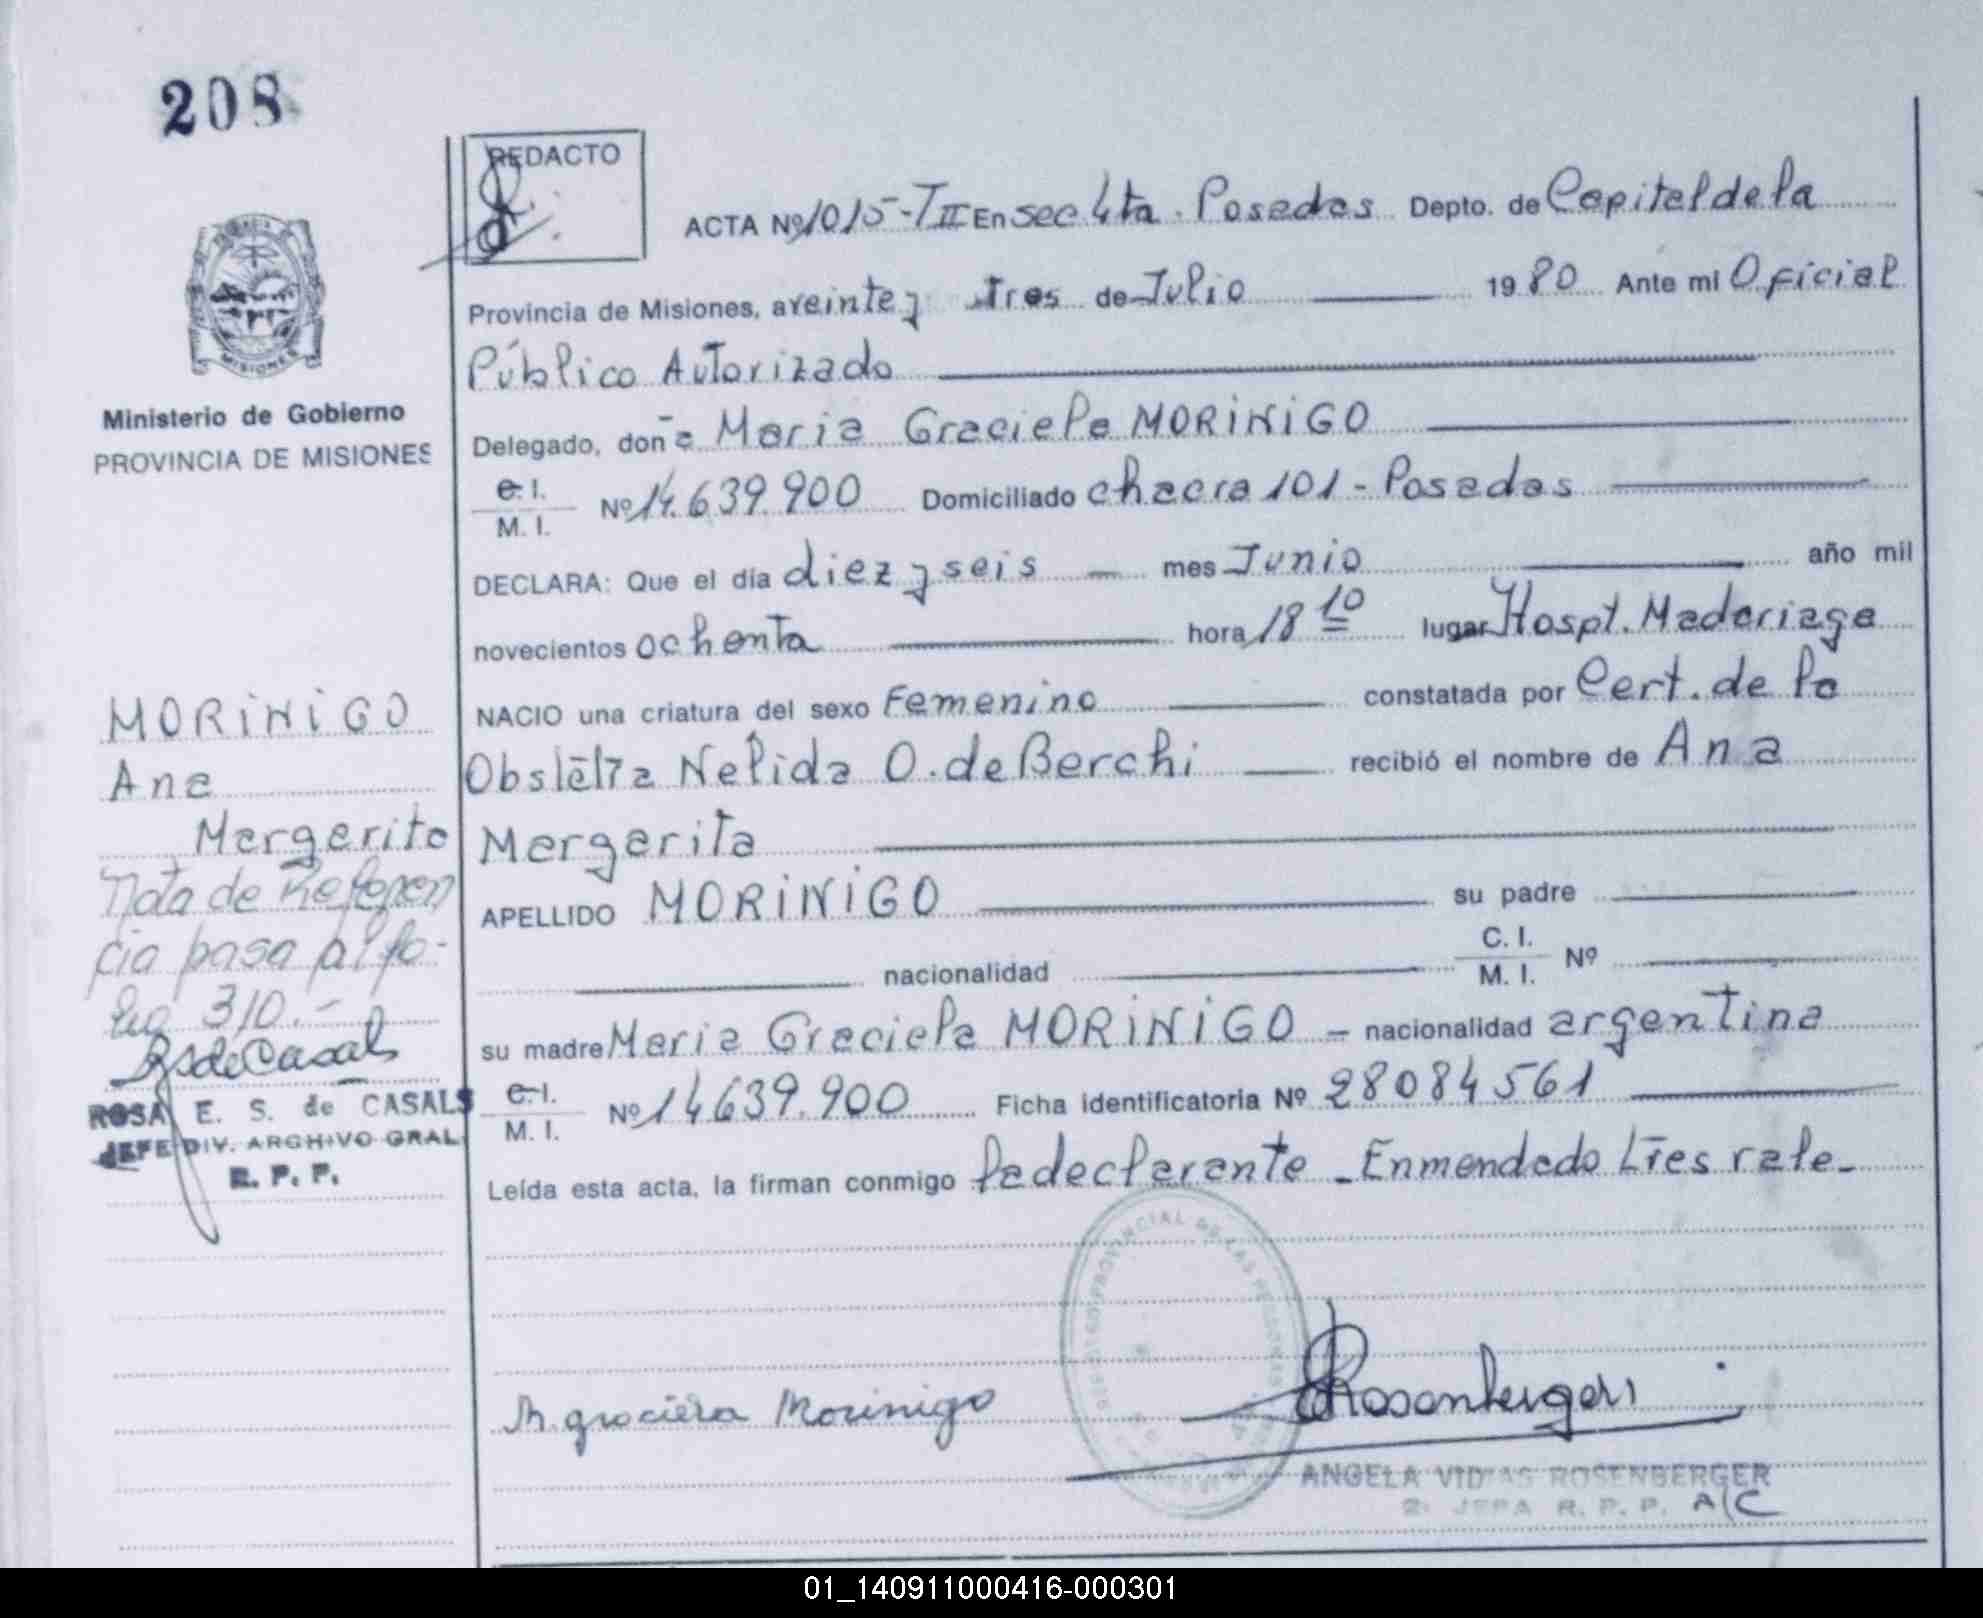 208
REDACTO
ACTA Nº 1015-TII En Sec 4ta. Posadas Depto. de Capital de la
Provincia de Misiones, a veinte y Tres de Julio 1980 Ante mi Oficial
Público Autorizado
Ministerio de Gobierno
PROVINCIA DE MISIONES
Delegado, doña Maria Graciela MORINIGO
C. I.
M. I. Nº 14.639.900 Domiciliado chacra 101 - Posadas
DECLARA: Que el día diez y seis mes Junio año mil
novecientos ochenta hora 18 10 lugar Hospt. Madariaga
NACIO una criatura del sexo Femenino constatada por Cert. de la
Nelida O. de Berchi recibió el nombre de Ana
Margarita
APELLIDO MORINIGO su padre
nacionalidad C. I.
M. I. Nº
su madre Maria Graciela MORINIGO - nacionalidad argentina
C. I.
M. I. Nº 14639.900 Ficha identificatoria Nº 28084561
Leída esta acta, la firman conmigo la declarante - Enmendado Tres vale -
MORINIGO
Ana
Margarita
Nota de Referen
cia pasa al fo-
lio 310.-
RSdeCasals
ROSA E. S. de CASALS
JEFE DIV. ARCHIVO GRAL.
R. P. P.
M. graciela Morinigo
Rosenberger
ANGELA VIDMAS ROSENBERGER
2º JEFA R. P. P. A/C
01_140911000416-000301